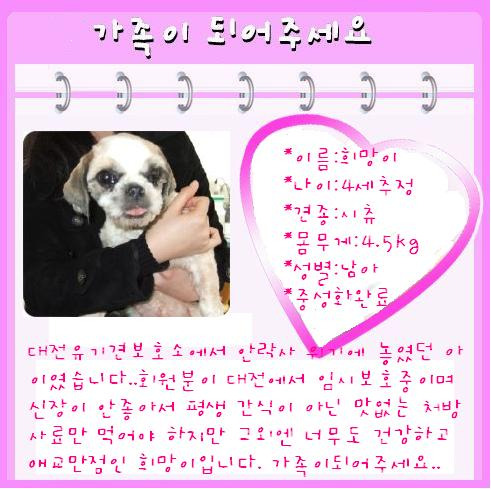 가족이 되어주세요
*이름:희망이
*나이:4세추정
*견종:시츄
*몸무게:4.5kg
*성별:남아
*중성화완료
대전유기견보호소에서 안락사 위기에 놓였던 아
이였습니다..회원분이 대전에서 임시보호중이며
신장이 안좋아서 평생 간식이 아닌 맛없는 처방
사료만 먹어야 하지만 그외엔 너무도 건강하고
애교만점인 희망이입니다. 가족이되어주세요..